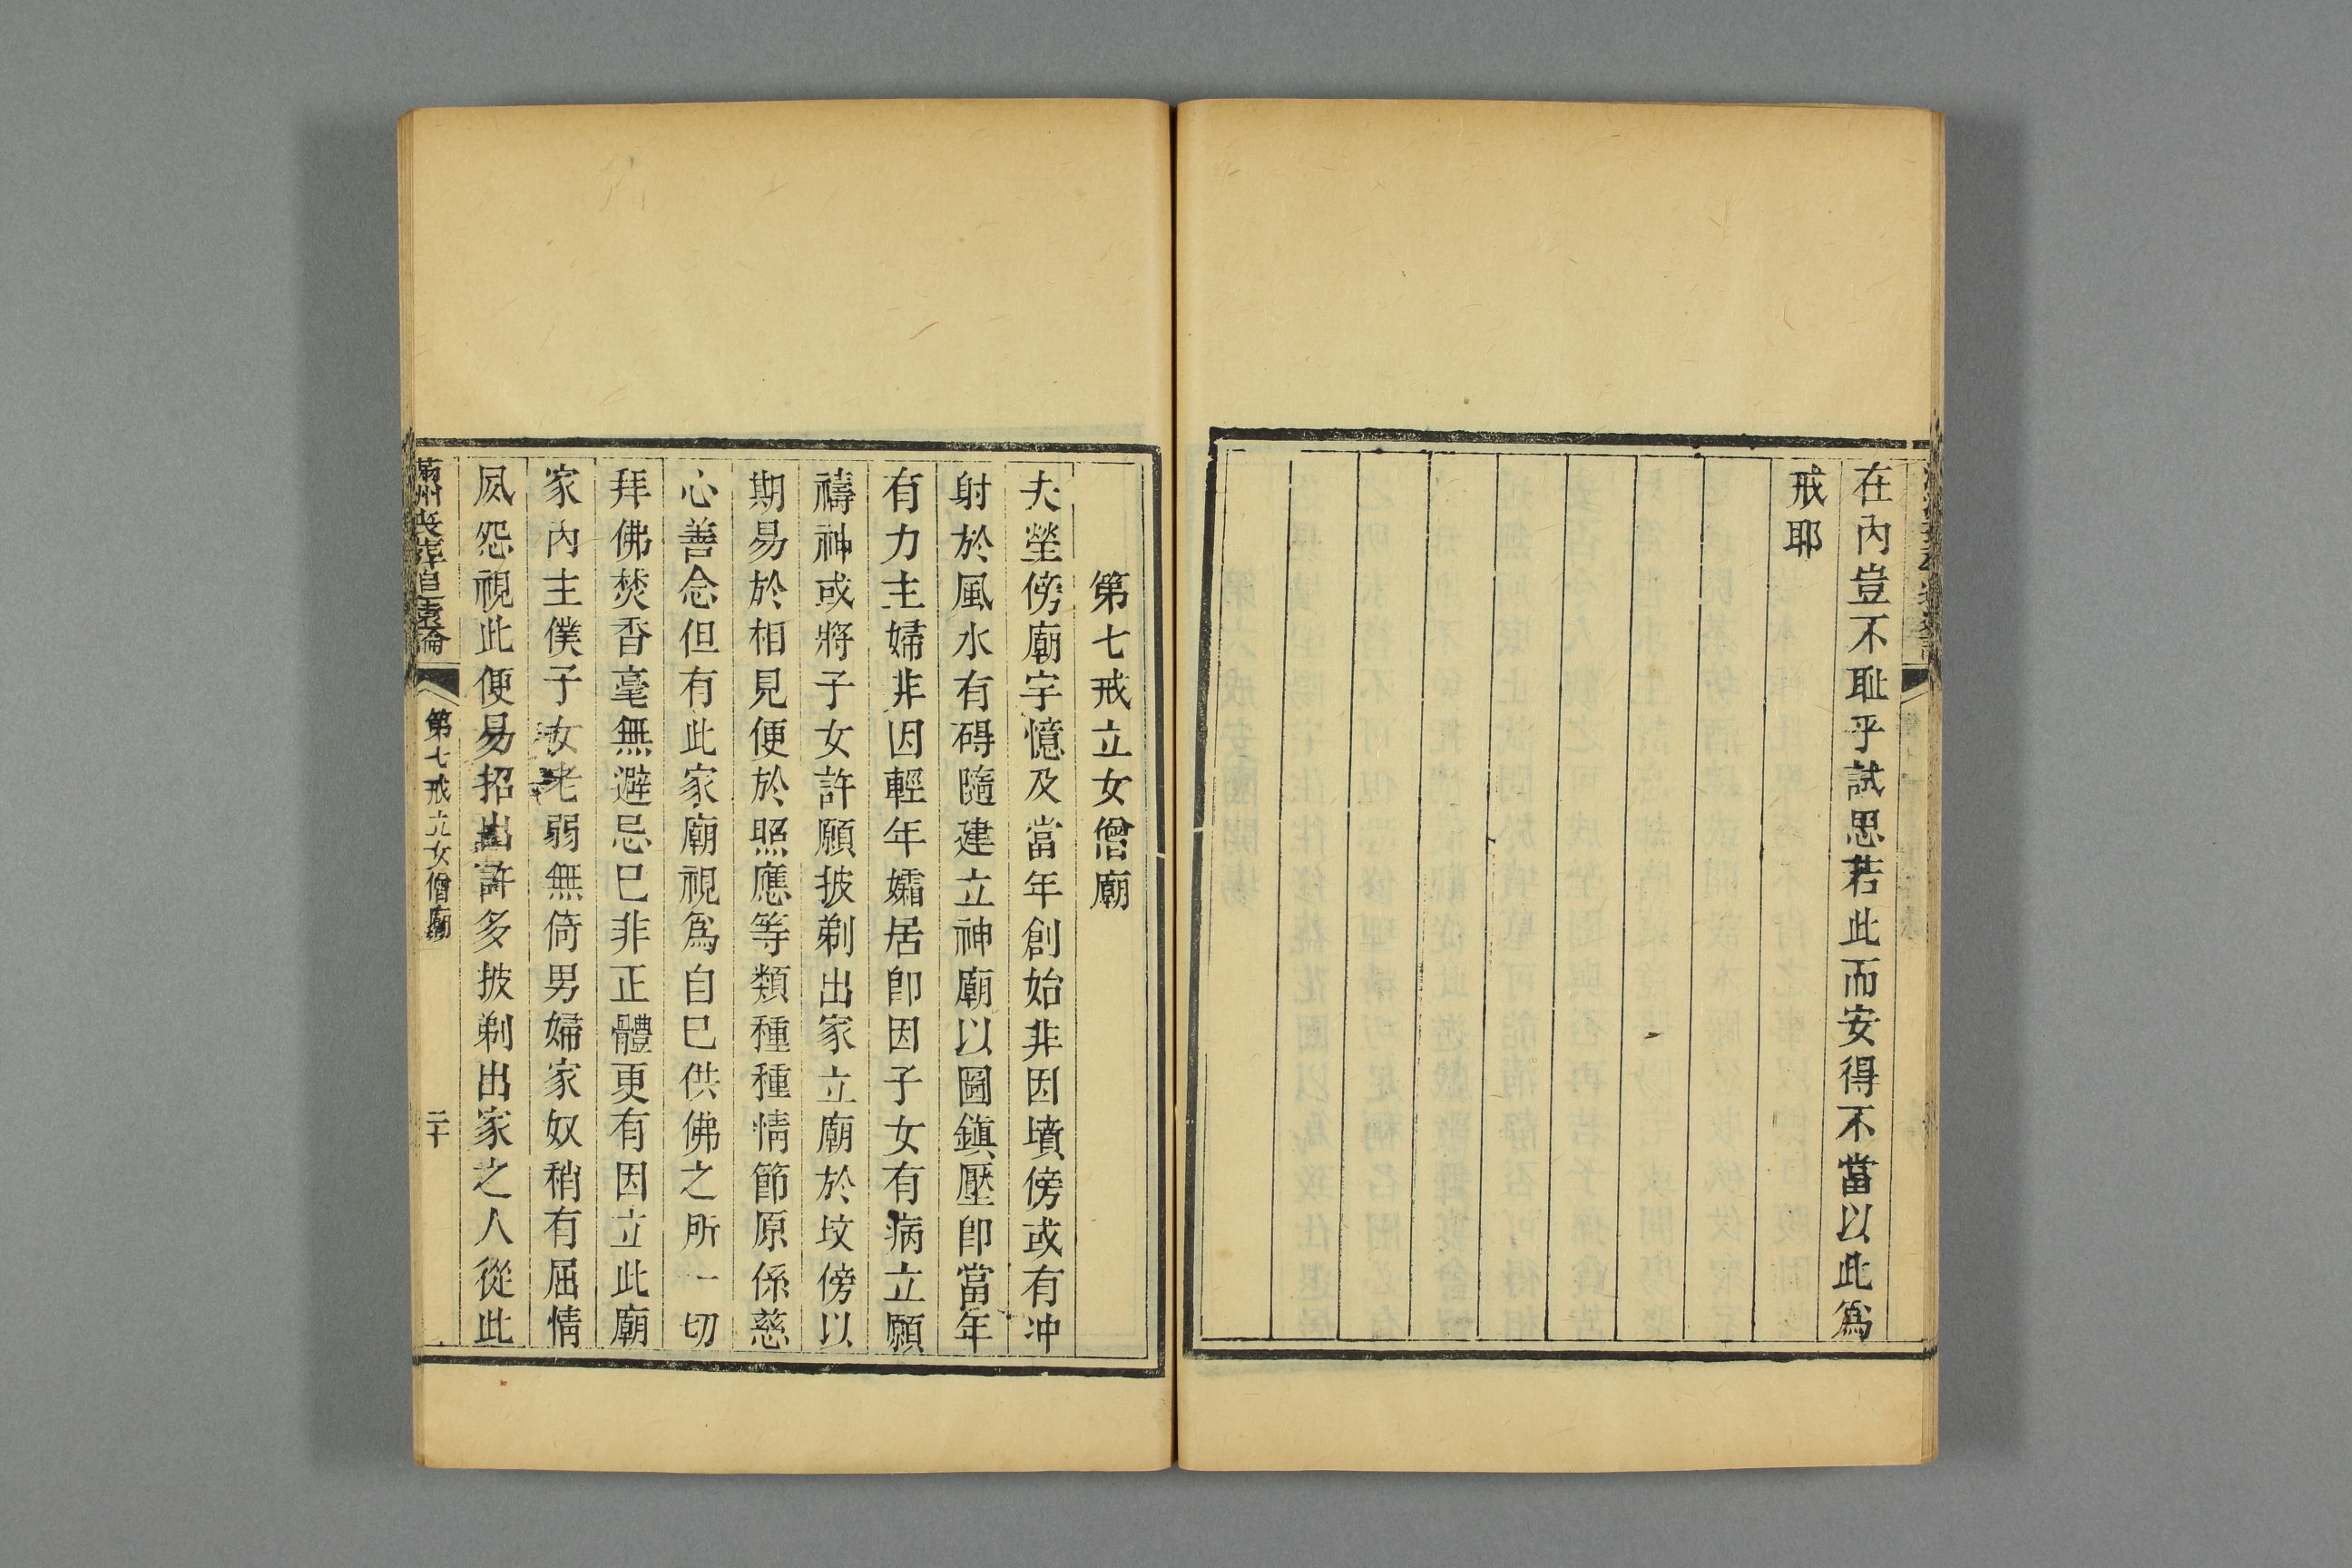 在內豈不耻乎試思若此而安得不當以此爲
戒耶
第七戒立女僧廟
夫塋傍廟宇憶及當年創始非因墳傍或有冲
射於風水有碍隨建立神廟以圖鎭壓卽當年
有力主婦非因輕年孀居卽因子女有病立願
禱神或將子女許願披剃出家立廟於坟傍以
期易於相見便於照應等類種種情節原係慈
心善念但有此家廟視爲自已供佛之所一切
拜佛焚香毫無避忌已非正體更有因立此廟
家內主僕子女老弱無倚男婦家奴稍有屈情
夙怨視此便易招出許多披剃出家之人從此
滿州喪葬追遠論
第七戒立女僧廟
二十